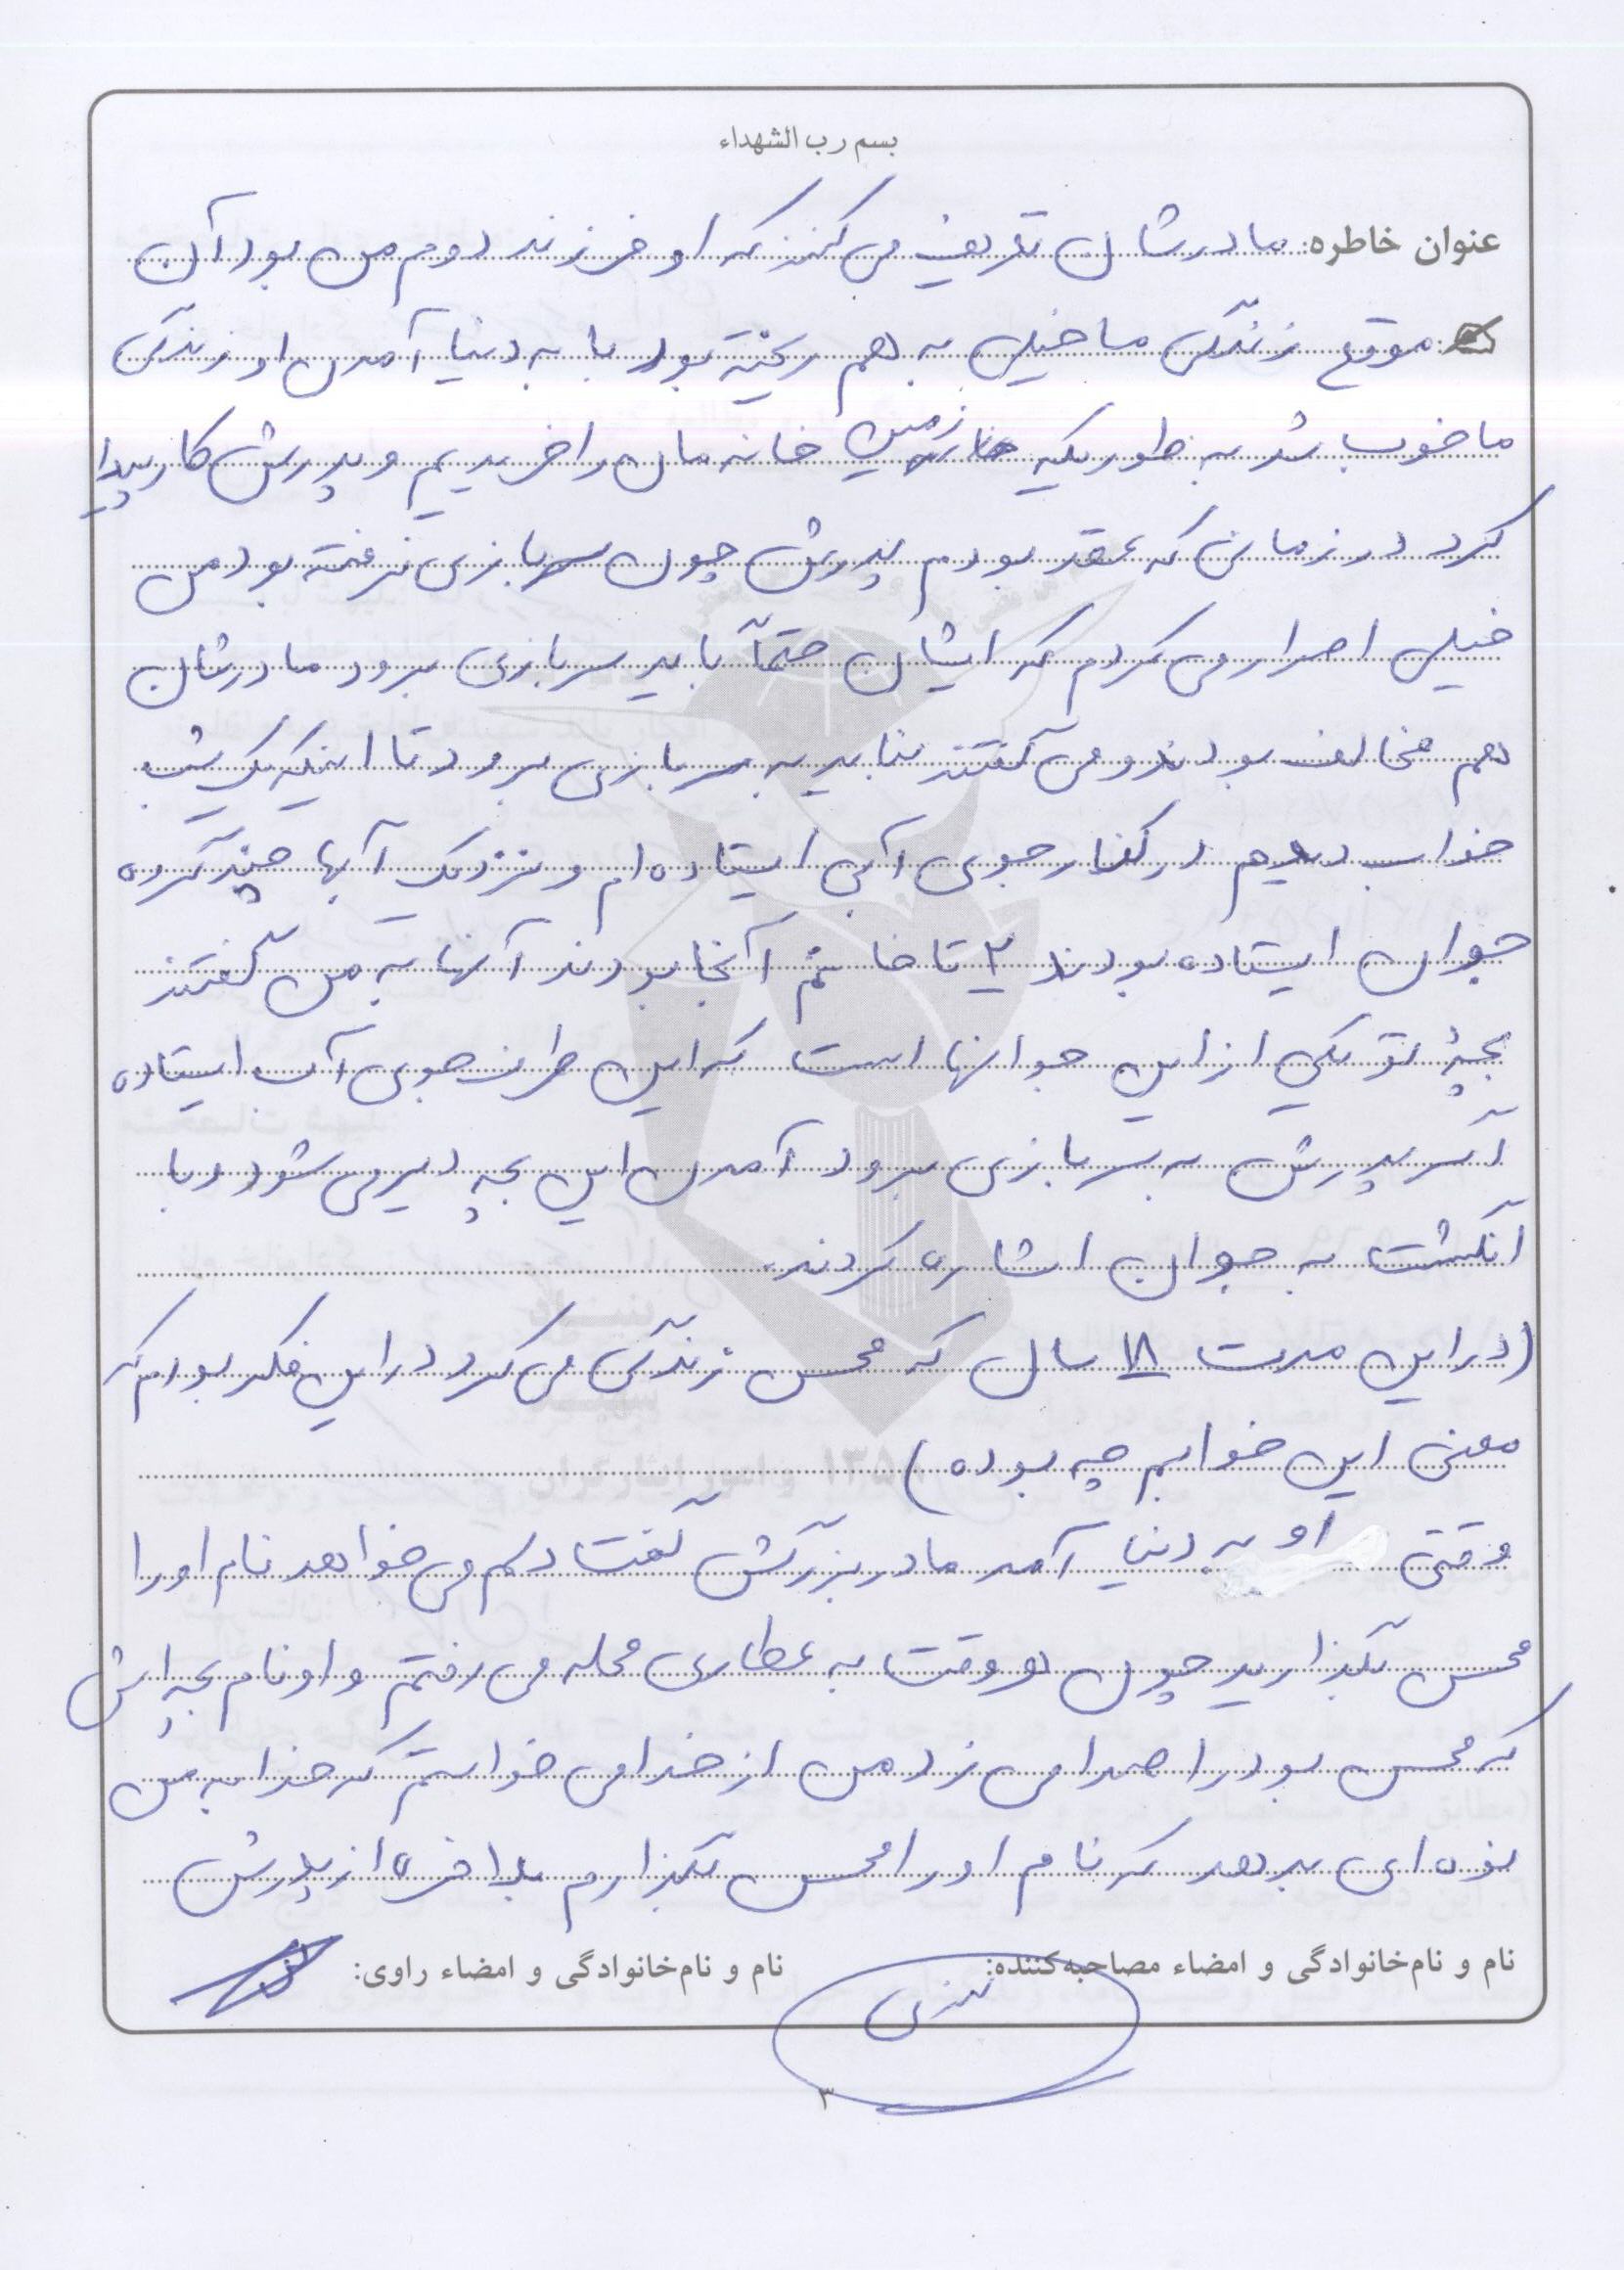 بسم رب الشهداء
عنوان خاطره: مادرشان تعریف می کنند که او فرزند دوم من بود آن
موقع زندگی ما خیلی به هم ریخته بود با به دنیا آمدن او زندگی
ما خوب شد به طوریکه زمین خانه مان را خریدیم و پدرش کار پیدا
کرد در زمانی که عقد بودم پدرش چون سربازی نرفته بود من
خیلی اصرار می کردم که ایشان حتماً باید سربازی برود مادرشان
هم مخالف بودند و می گفتند نباید به سربازی برود تا اینکه یک شب
خواب دیدم در کنار جوی آبی ایستاده ام و نزدیک آبها چند گروه
جوان ایستاده بودند ۲ تا خانم آنجا بودند آنها به من گفتند
بچۀ تو یکی از این جوانها است که این طرف جوی آب ایستاده
اگر پدرش به سربازی برود آمدن این بچه دیر می شود و با
انگشت به جوان اشاره کردند.
(در این مدت ۱۸ سال که محسن زندگی می کرد در این فکر بودم که
معنی این خوابم چه بوده)
وقتی او به دنیا آمد مادربزرگش گفت دلم می خواهد نام او را
محسن بگذارید چون هر وقت به عطاری محله می رفتم و او نام بچه اش
که محسن بود را صدا می زد من از خدا می خواستم که خدا به من
نوه ای بدهد که نام او را محسن بگذارم بلاخره از پدرش
نام و نام‌خانوادگی و امضاء مصاحبه‌کننده:
نام و نام‌خانوادگی و امضاء راوی:
۳